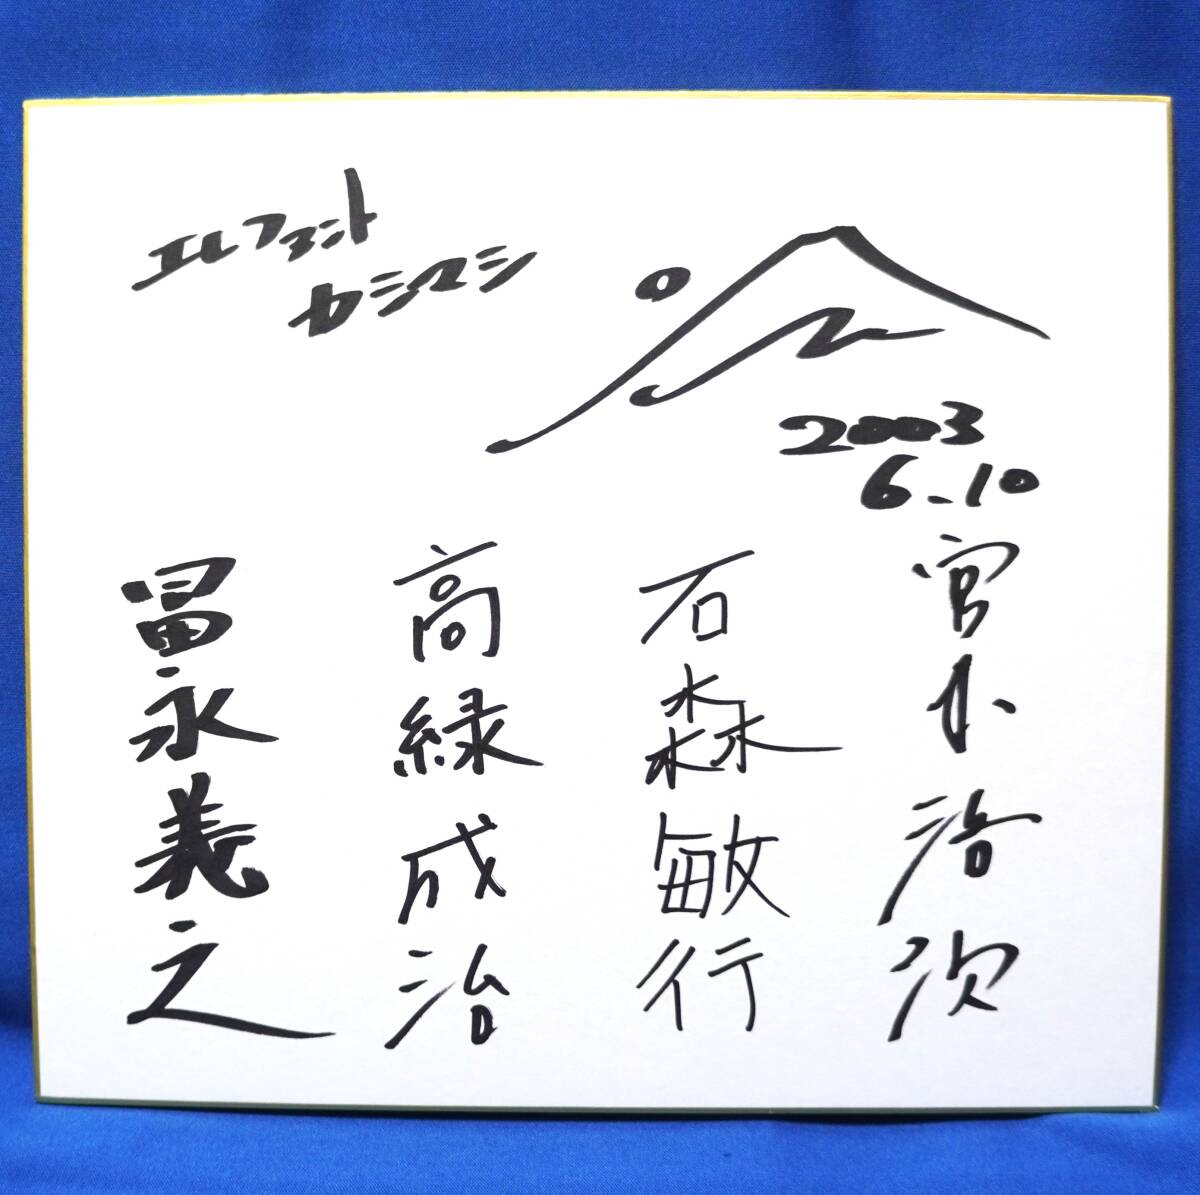 エレファント
カシマシ
2003
6.10
宮本浩次
石森敏行
高緑成治
冨永義之